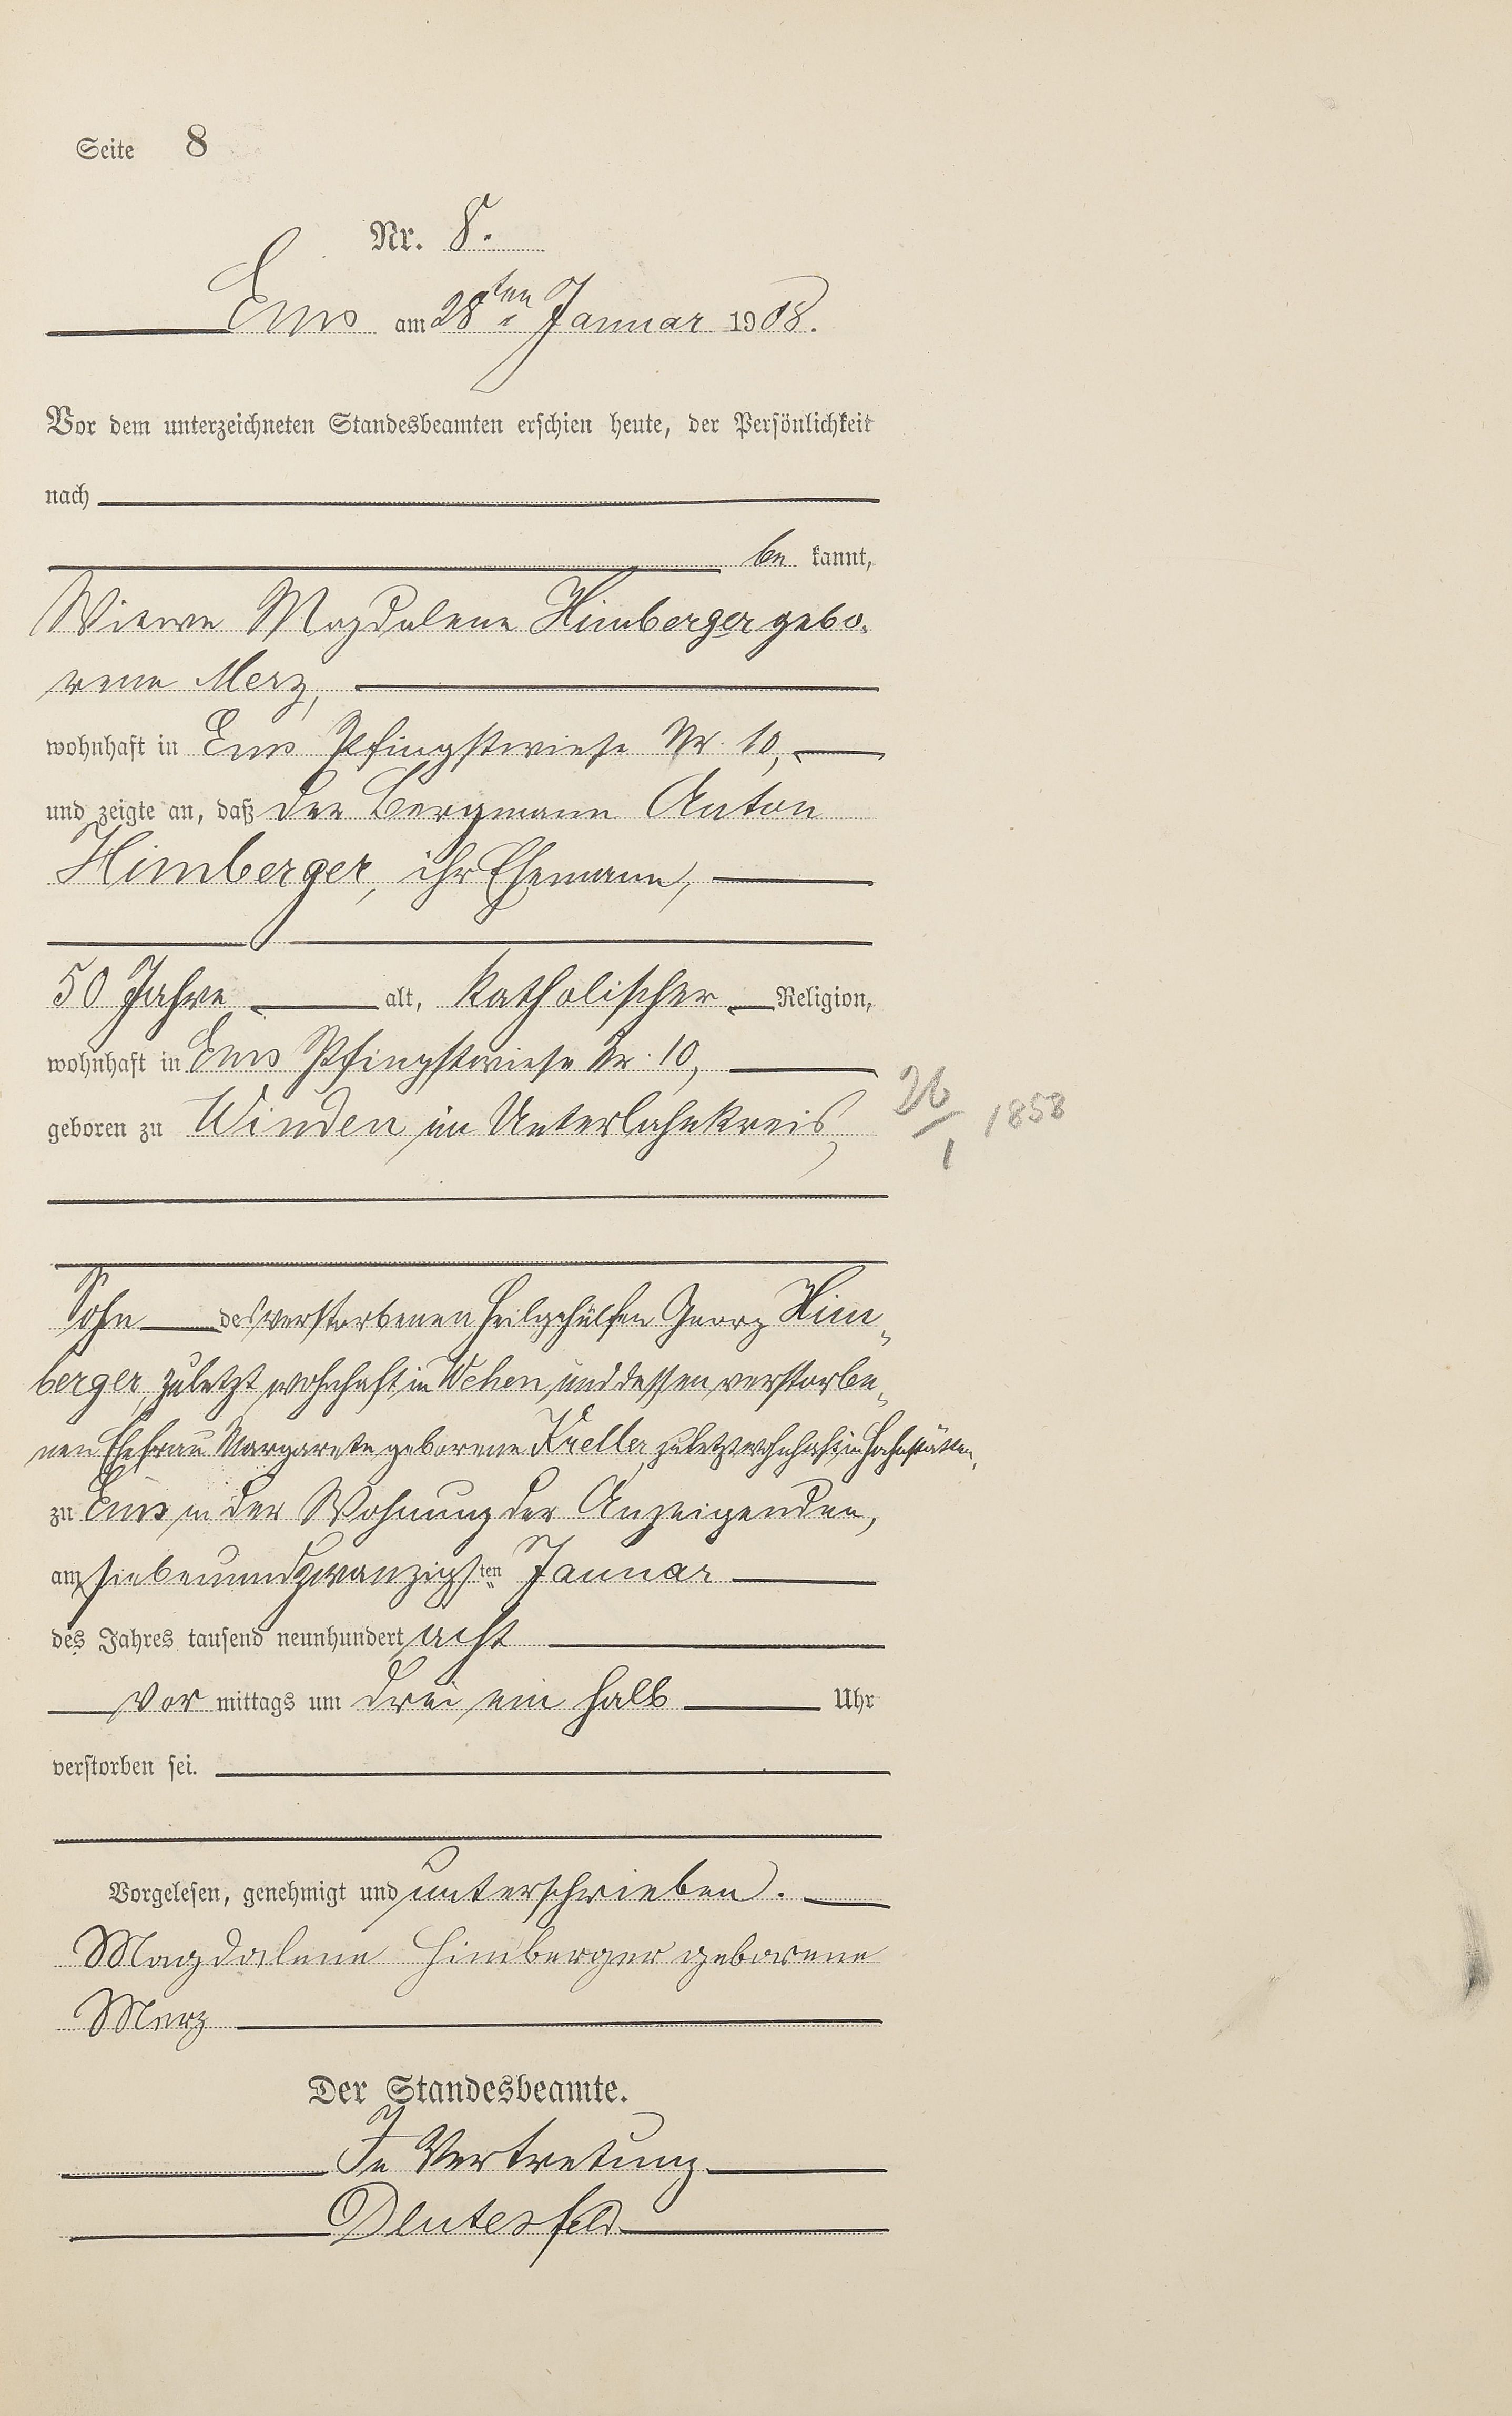 Seite 8
Nr. 8.
Ems am 28ten Januar 1908.
Vor dem unterzeichneten Standesbeamten erschien heute, der Persönlichkeit
nach
be kannt,
Witwe Magdalene Himberger gebo-
rene Merz,
wohnhaft in Ems Pfingstwiese Nr. 10,
und zeigte an, daß der Bergmann Anton
Himberger, ihr Ehemann,
50 Jahre alt, katholischer Religion,
wohnhaft in Ems Pfingstwiese Nr. 10,
geboren zu Winden im Unterlahnkreis,
26/1 1858
Sohn des verstorbenen Heilgehülfen Georg Him-
berger, zuletzt wohnhaft in Wehen, und dessen verstorbe-
nen Ehefrau Margarete geborene Kreller, zuletzt wohnhaft in Hahnstätten,
zu Ems in der Wohnung der Anzeigenden,
am siebenundzwanzigsten Januar
des Jahres tausend neunhundert acht
Vor mittags um drei ein halb Uhr
verstorben sei.
Vorgelesen, genehmigt und unterschrieben.
Magdalene Himberger geborene
Merz
Der Standesbeamte.
In Vertretung